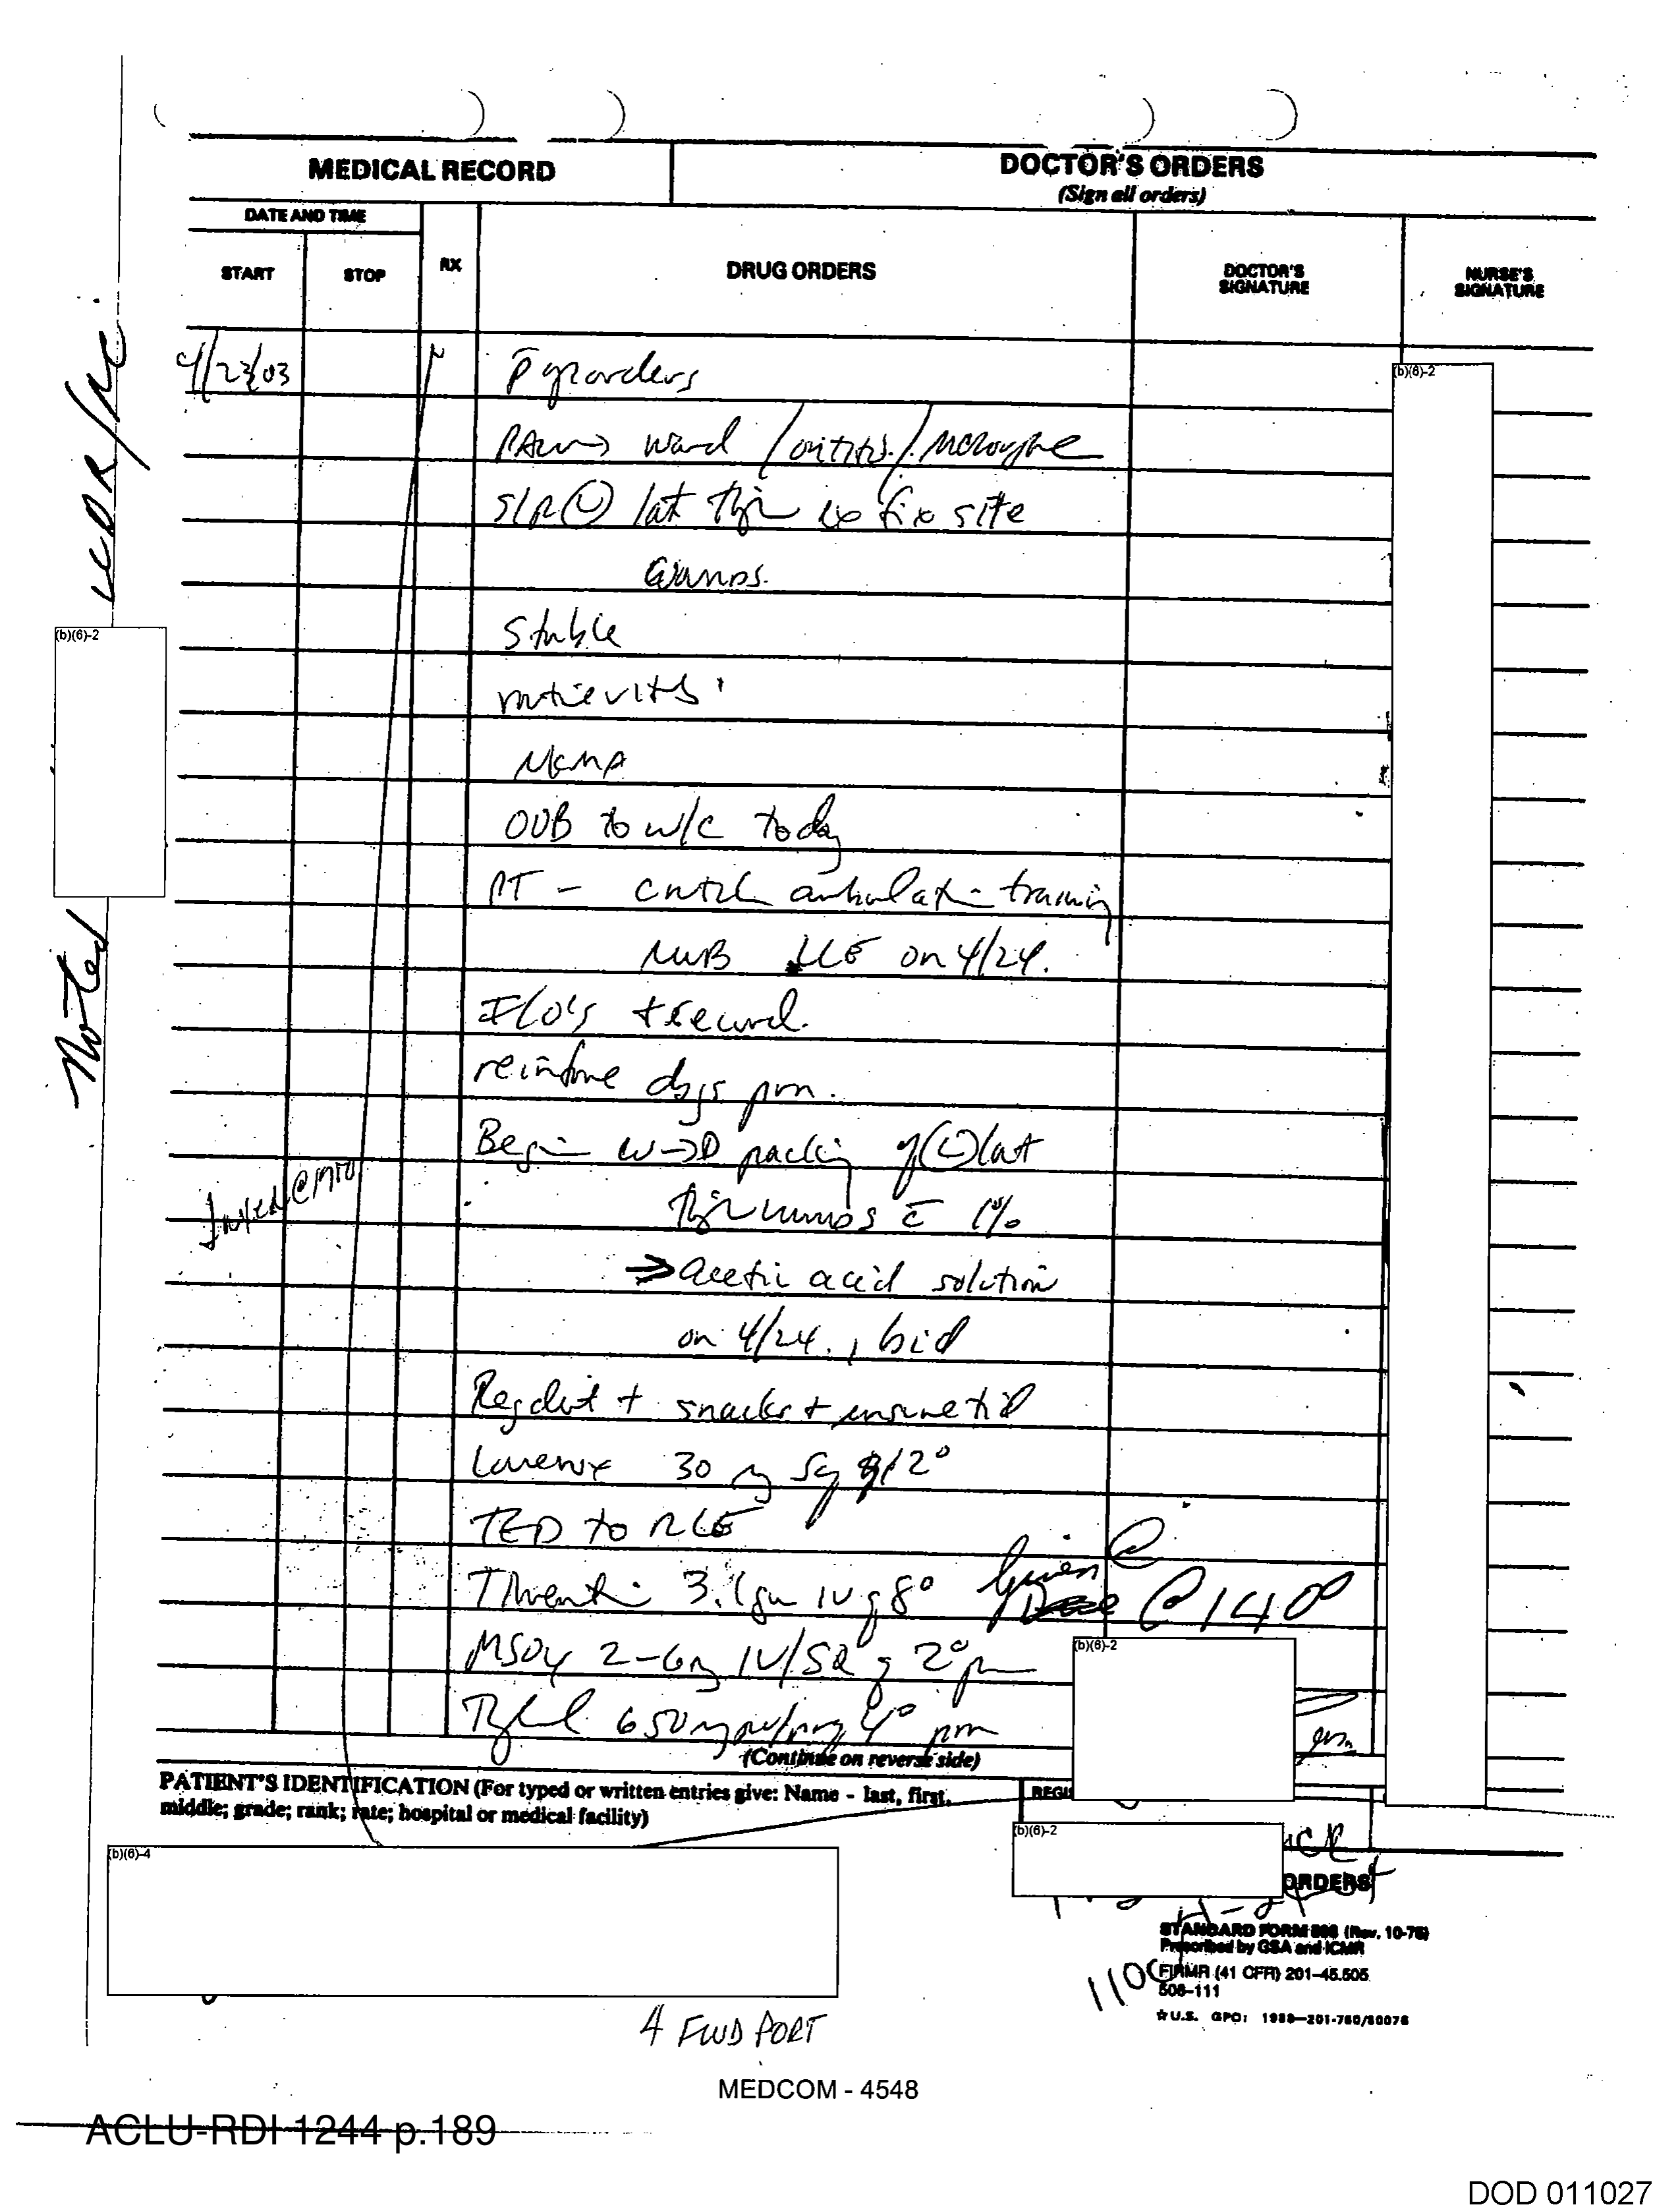 MEDICAL RECORD
DOCTOR'S ORDERS
(Sign all orders)
DATE AND TIME
START
STOP
RX
DRUG ORDERS
DOCTOR'S SIGNATURE
NURSE'S SIGNATURE
4/23/03
orders
ward /
S/P (L) lat fix site
Stable
NKMA
OOB to w/c today
PT - ambulation training
NWB LLE on 4/24.
I/O's + record.
reinforce dsgs prn.
Begin W→D packing of (L) lat
c̄ 1%
→ acetic acid solution
on 4/24., bid
Reg diet + snacks + ensure tid
Lovenox 30 mg SQ q12°
TED to RLE
3.1 gm IV q 8° Given @ 1400
MSO4 2-6 mg IV/SQ q 2° prn
650 mg 4° prn
(Continue on reverse side)
PATIENT'S IDENTIFICATION (For typed or written entries give: Name - last, first, middle; grade; rank; rate; hospital or medical facility)
(b)(6)-2
(b)(6)-2
(b)(6)-2
(b)(6)-2
(b)(6)-4
Noted
REGI
ORDERS
STANDARD FORM 508 (Rev. 10-75)
Prescribed by GSA and ICMR
FIRMR (41 CFR) 201-45.505
508-111
☆U.S. GPO: 1988-201-760/80076
1100
4 FWD PORT
MEDCOM - 4548
ACLU-RDI 1244 p.189
DOD 011027